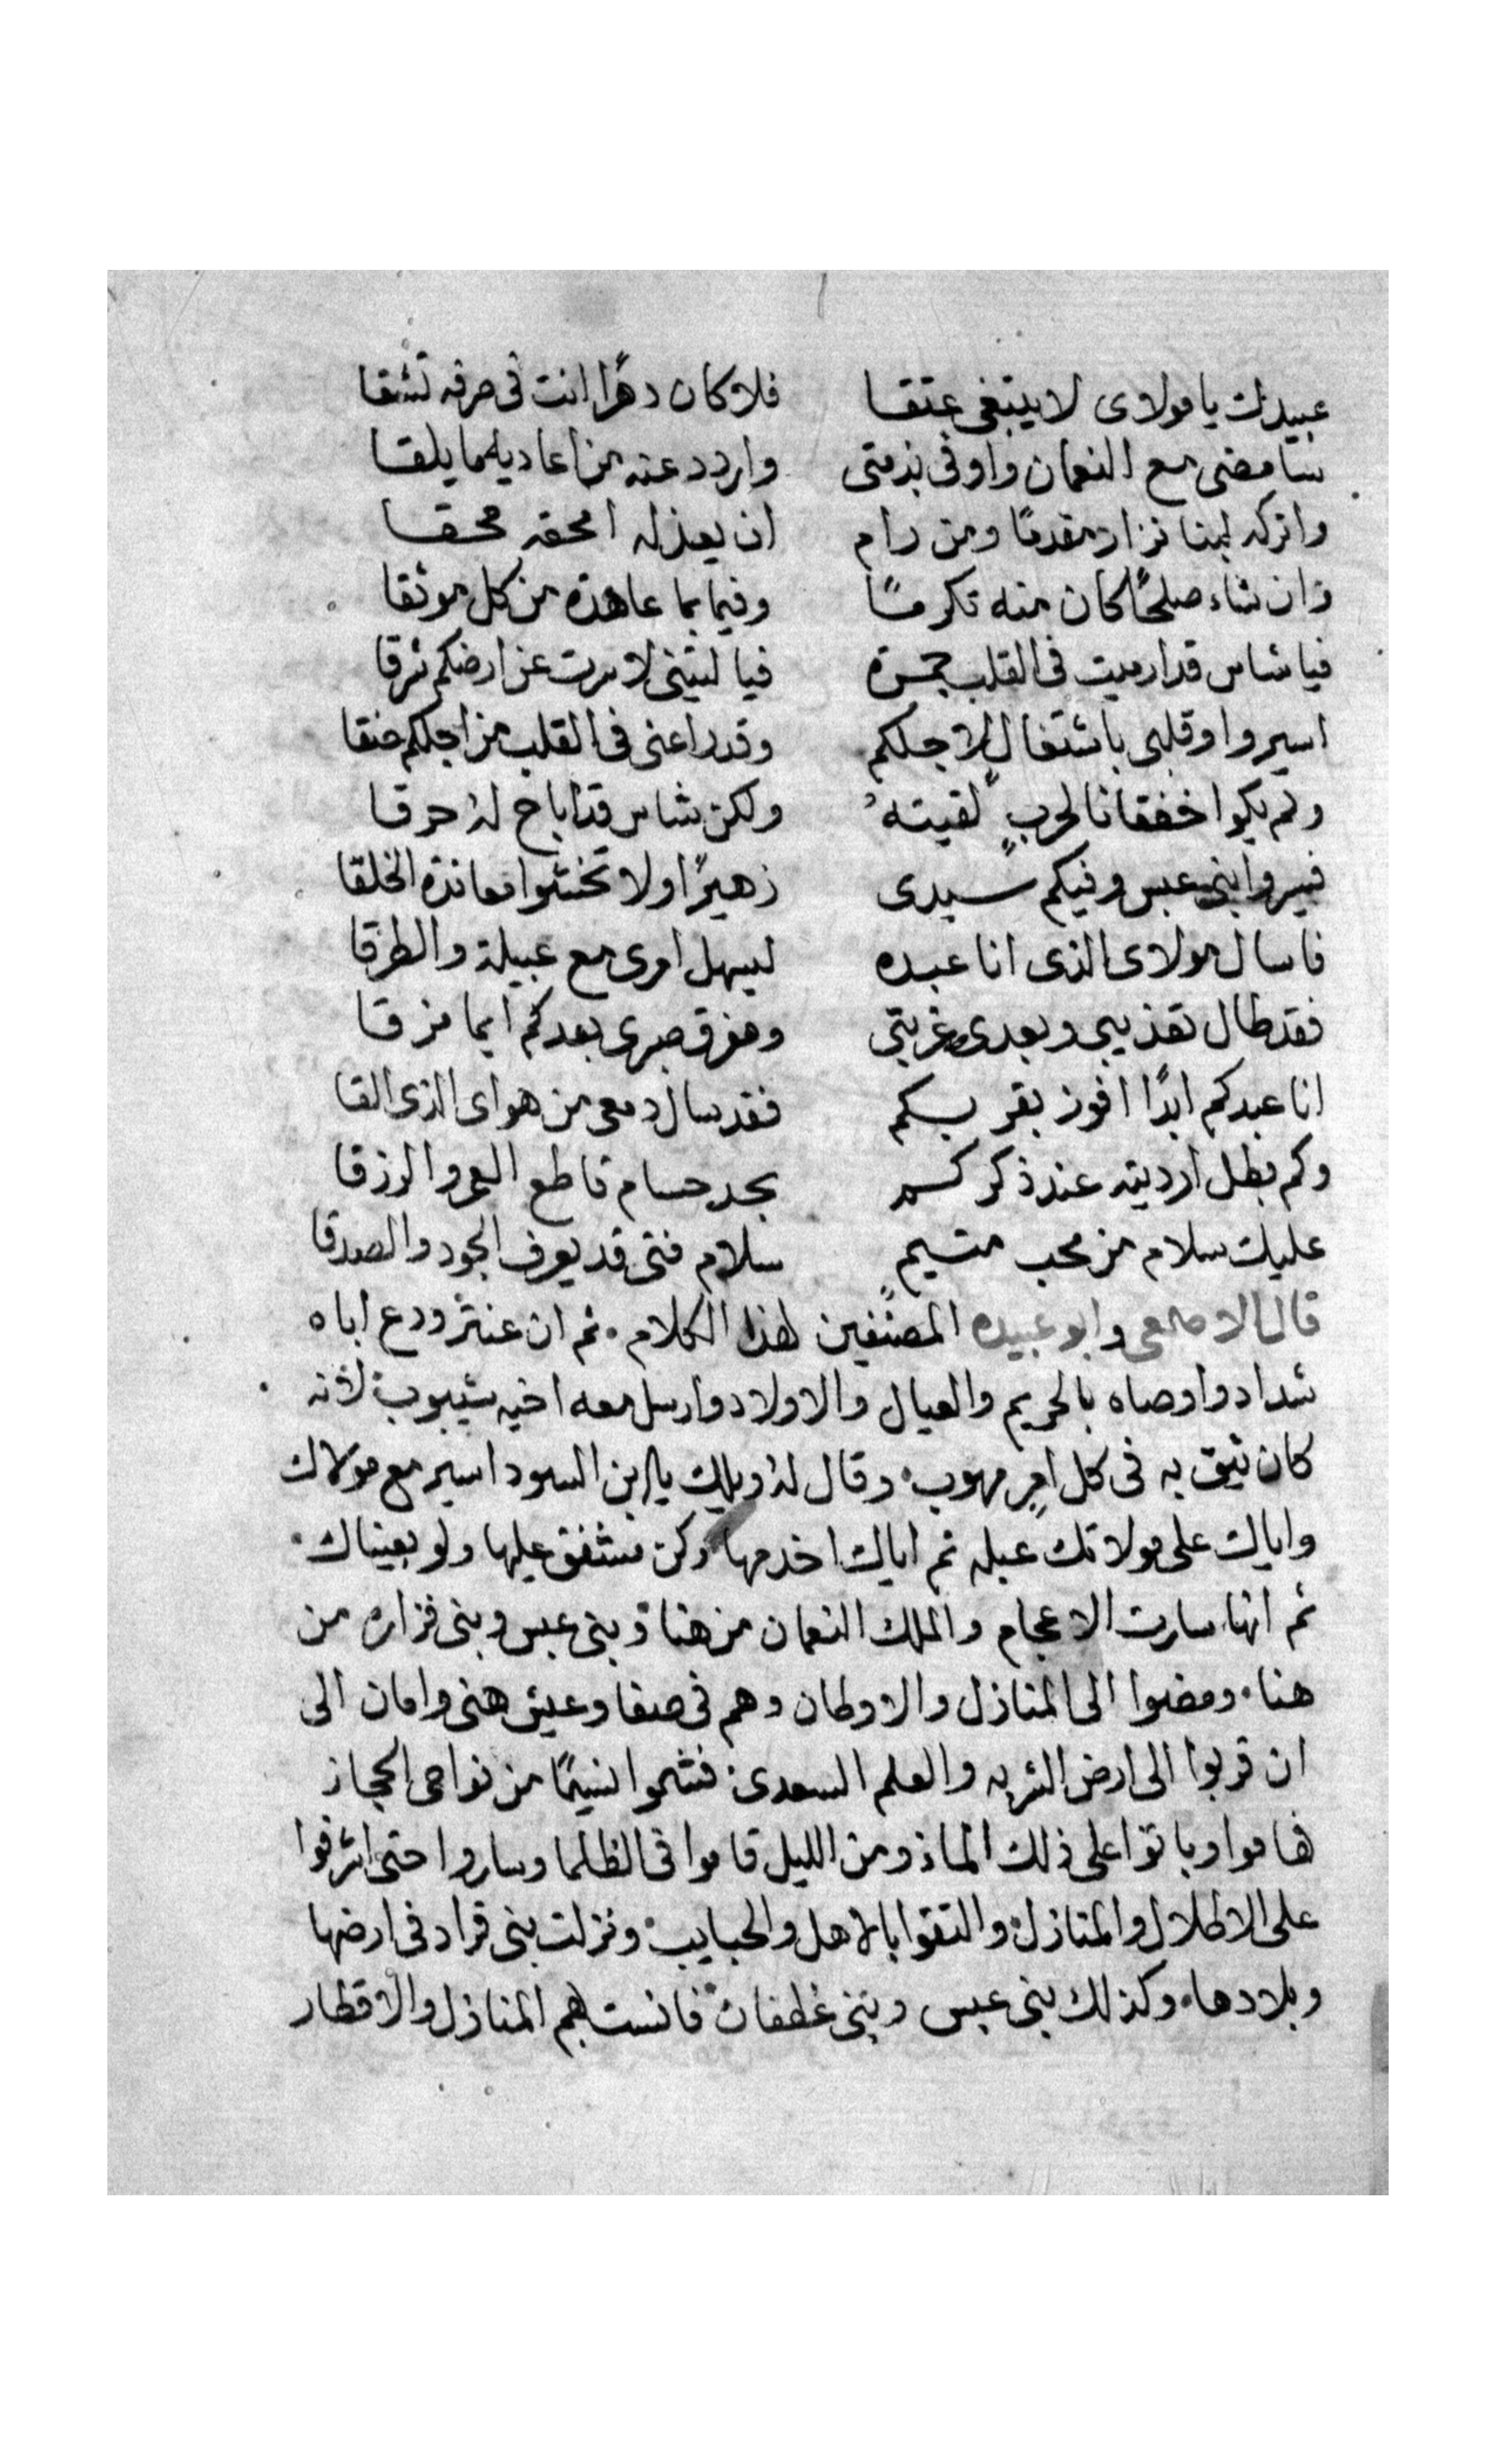 عبيدك يا مولاى لا يبتغى عتقا فلا كان دهرًا انت فى صرفه تشقا
سامضى مع النعمان واوفى بذمتى واردد عنه من اعاديه ما يلقا
واتركه لبنا نزار مقدمًا ومن رام ان يعذله امحقه محقا
وان شاء صلحًا كان منه تكرمًا وفيا بما عاهده من كل موثقا
فيا شاس قد ارميت فى القلب جمرة فيا ليتنى لا سرت عن ارضكم شرقا
اسيروا وقلبى باشتغال لاجلكم وقد راعنى فى القلب من اجلكم خنقا
ولم يكوا خفقانا لحربٍ لقيته ولكن شاس قد اباح له حرقا
فسيروا بنى عبس وفيكم سيدى زهيرًا ولا تخشوا معاندة الخلقا
فاسال مولاى الذى انا عبده ليسهل امرى مع عبيلة والطرقا
فقد طال تعذيبى وبعدى وغربتى ومزق صبرى بعدكم ايما مزقا
انا عبدكم ابدًا افوز بقربكم فقد سال دمعى من هواى الذى القا
وكم بطل ارديته عند ذكركم بحد حسام قاطع العمر والرزقا
عليك سلام من محب متيمٍ سلام فتى قد يعرف الجود والصدقا
قال الاصمعى وابو عبيده المصنفين لهذا الكلام ثم ان عنتر ودع اباه
شداد واوصاه بالحريم والعيال والاولاد وارسل معه اخيه شيبوب لانه
كان يثق به فى كل امرٍ مهوب وقال له ويلك يا ابن السودا سير مع مولاك
واياك على مولاتك عبله ثم اياك اخدمها وكن مشفق عليها ولو بعيناك
ثم انها سارت الاعجام والملك النعمان من هنا وبنى عبس وبنى فزاره من
هنا ومضوا الى المنازل والاوطان وهم فى صفا وعيش هنى وامان الى
ان قربوا الى ارض الشربه والعلم السعدى فشموا نسيمًا من نواحى الحجاز
فهاموا وباتوا على ذلك الماء ومن الليل قاموا فى الظلما وساروا حتى اشرفوا
على الاطلال والمنازل والتقوا بالاهل والحبايب ونزلت بنى قراد فى ارضها
وبلادها وكذلك بنى عبس وبنى غطفان فانست بهم المنازل والاقطار